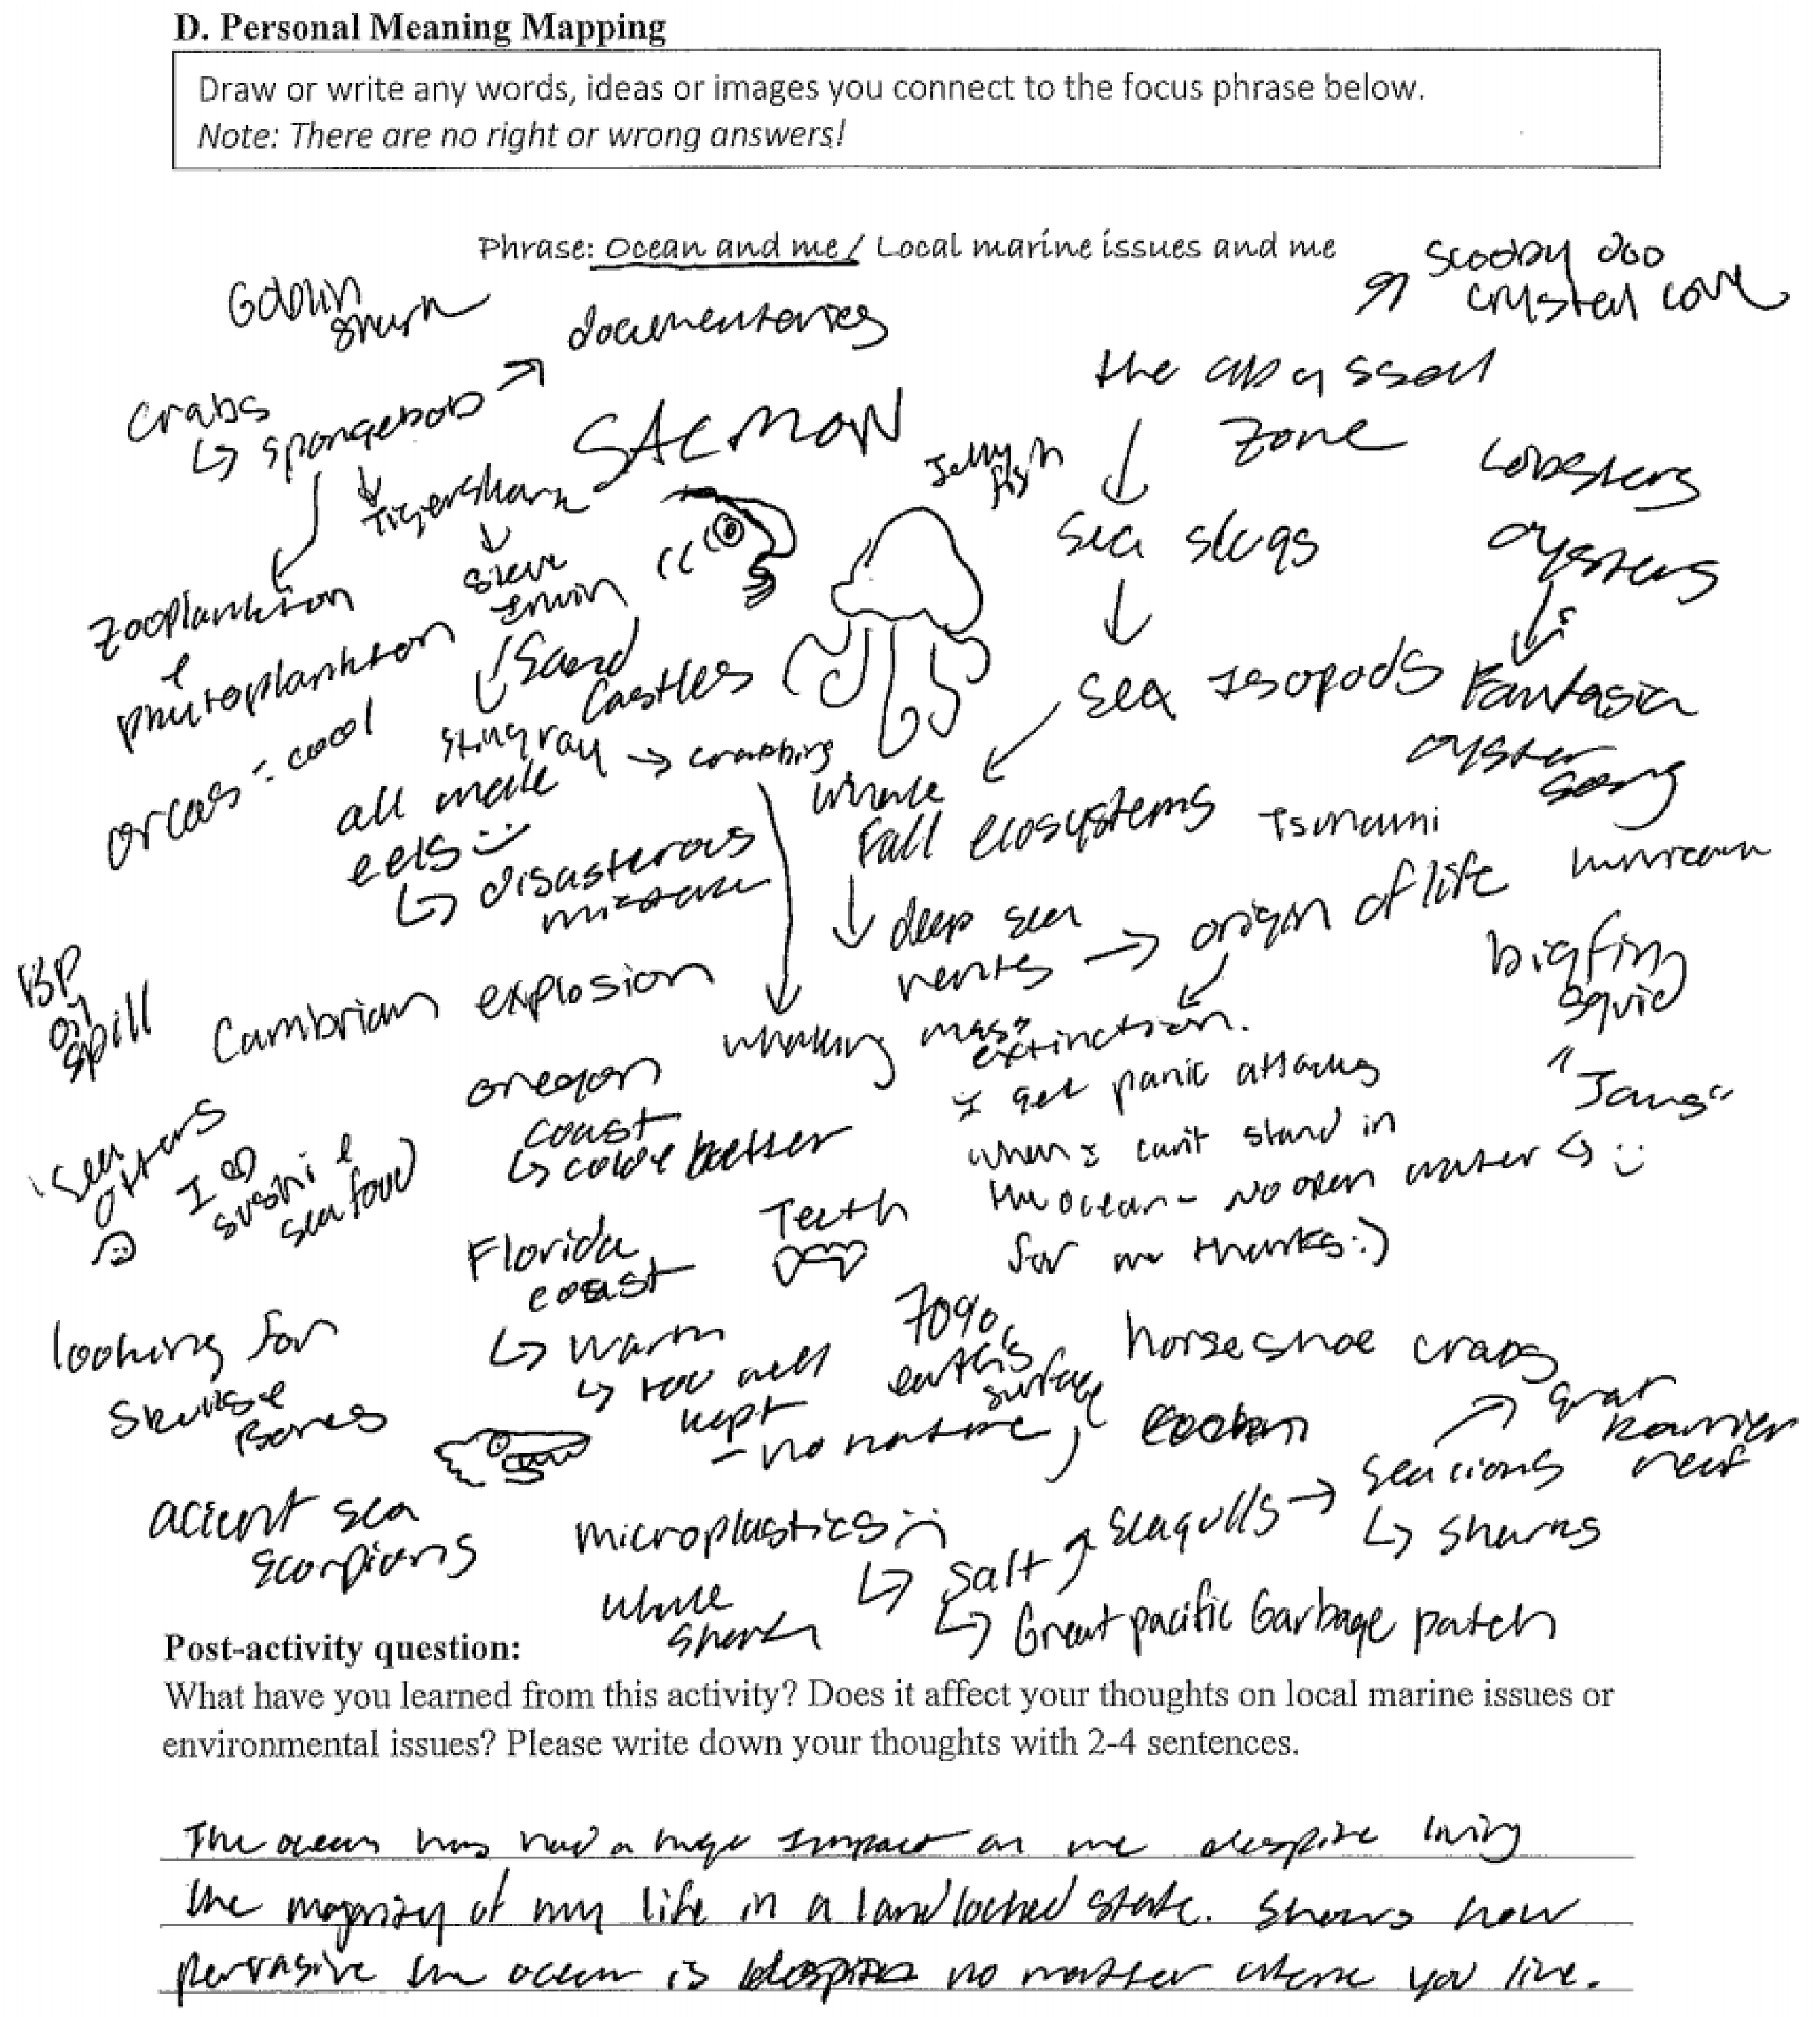 D. Personal Meaning Mapping
Draw or write any words, ideas or images you connect to the focus phrase below.
Note: There are no right or wrong answers!
Phrase: Ocean and me / Local marine issues and me
Scooby doo
crystal cove
Goblin
shark
documentaries
the abyssal
zone
crabs
↳ spongebob
SALMON
Jelly
fish
Lobsters
Tigershark
sea slugs
oysters
Steve
Irwin
zooplankton
&
phytoplankton
Sand
Castles
sea Isopods
Fantasia
oyster
song
orcas = cool
stingray → crabbing
all male
eels :)
↳ disasterous
mistake
whale
fall ecosystems
Tsunami
hurricane
deep sea
vents → origin of life
bigfin
squid
BP
oil
spill
Cambrian explosion
whaling
mass
extinction.
oregon
coast
↳ cold & better
I get panic attacks
when I can't stand in
the ocean - no open water
for me thanks :)
"Jaws"
↳ :)
sea
otters
I ♡
sushi &
sea food
Florida
coast
↳ warm
↳ too well
kept
- no nature
Teeth
70%
earth's
surface
horseshoe crabs
looking for
skulls &
Bones
great
barrier
reef
acient sea
scorpions
microplastics :(
↳ salt
seagulls → sea lions
↳ sharks
↳ Great pacific Garbage patch
whale
shark
Post-activity question:
What have you learned from this activity? Does it affect your thoughts on local marine issues or
environmental issues? Please write down your thoughts with 2-4 sentences.
The ocean has had a huge impact on me despite living
the majority of my life in a landlocked state. Shows how
pervasive the ocean is no matter where you live.